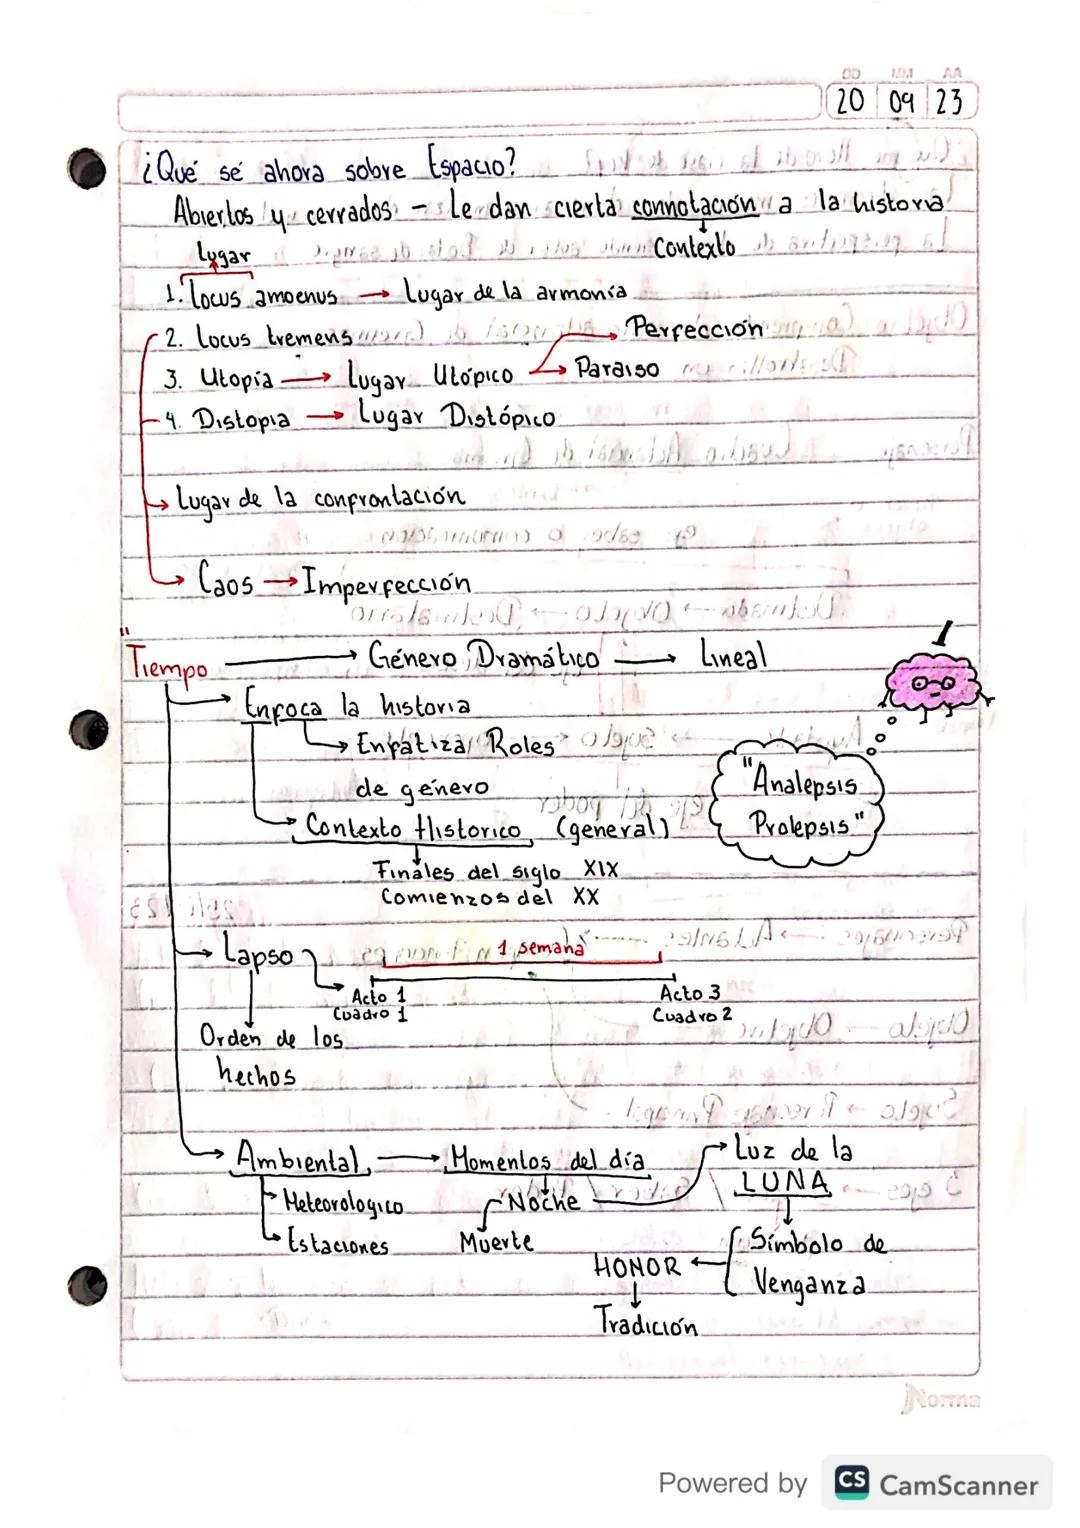 DD MM AA
20 09 23
¿Qué sé ahora sobre Espacio?
Abiertos y cerrados - Le dan cierta connotación a la historia
Lugar
Contexto
1. Locus amoenus → Lugar de la armonía
2. Locus tremens
Perfección
3. Utopía → Lugar Utópico → Paraiso
4. Distopia → Lugar Distópico
Lugar de la confrontación
Caos → Imperfección
"
Tiempo → Género Dramático → Lineal
Enfoca la historia
Enfatiza Roles
de género
"Analepsis
Prolepsis"
Contexto Historico (general)
Finales del siglo XIX
Comienzos del XX
Lapso
1 semana
Acto 1
Cuadro 1
Acto 3
Cuadro 2
Orden de los
hechos
Ambiental → Momentos del día
Luz de la
LUNA
Meteorologico
Noche
Estaciones
Muerte
Símbolo de
Venganza
HONOR
Tradición
Norma
Powered by CS CamScanner